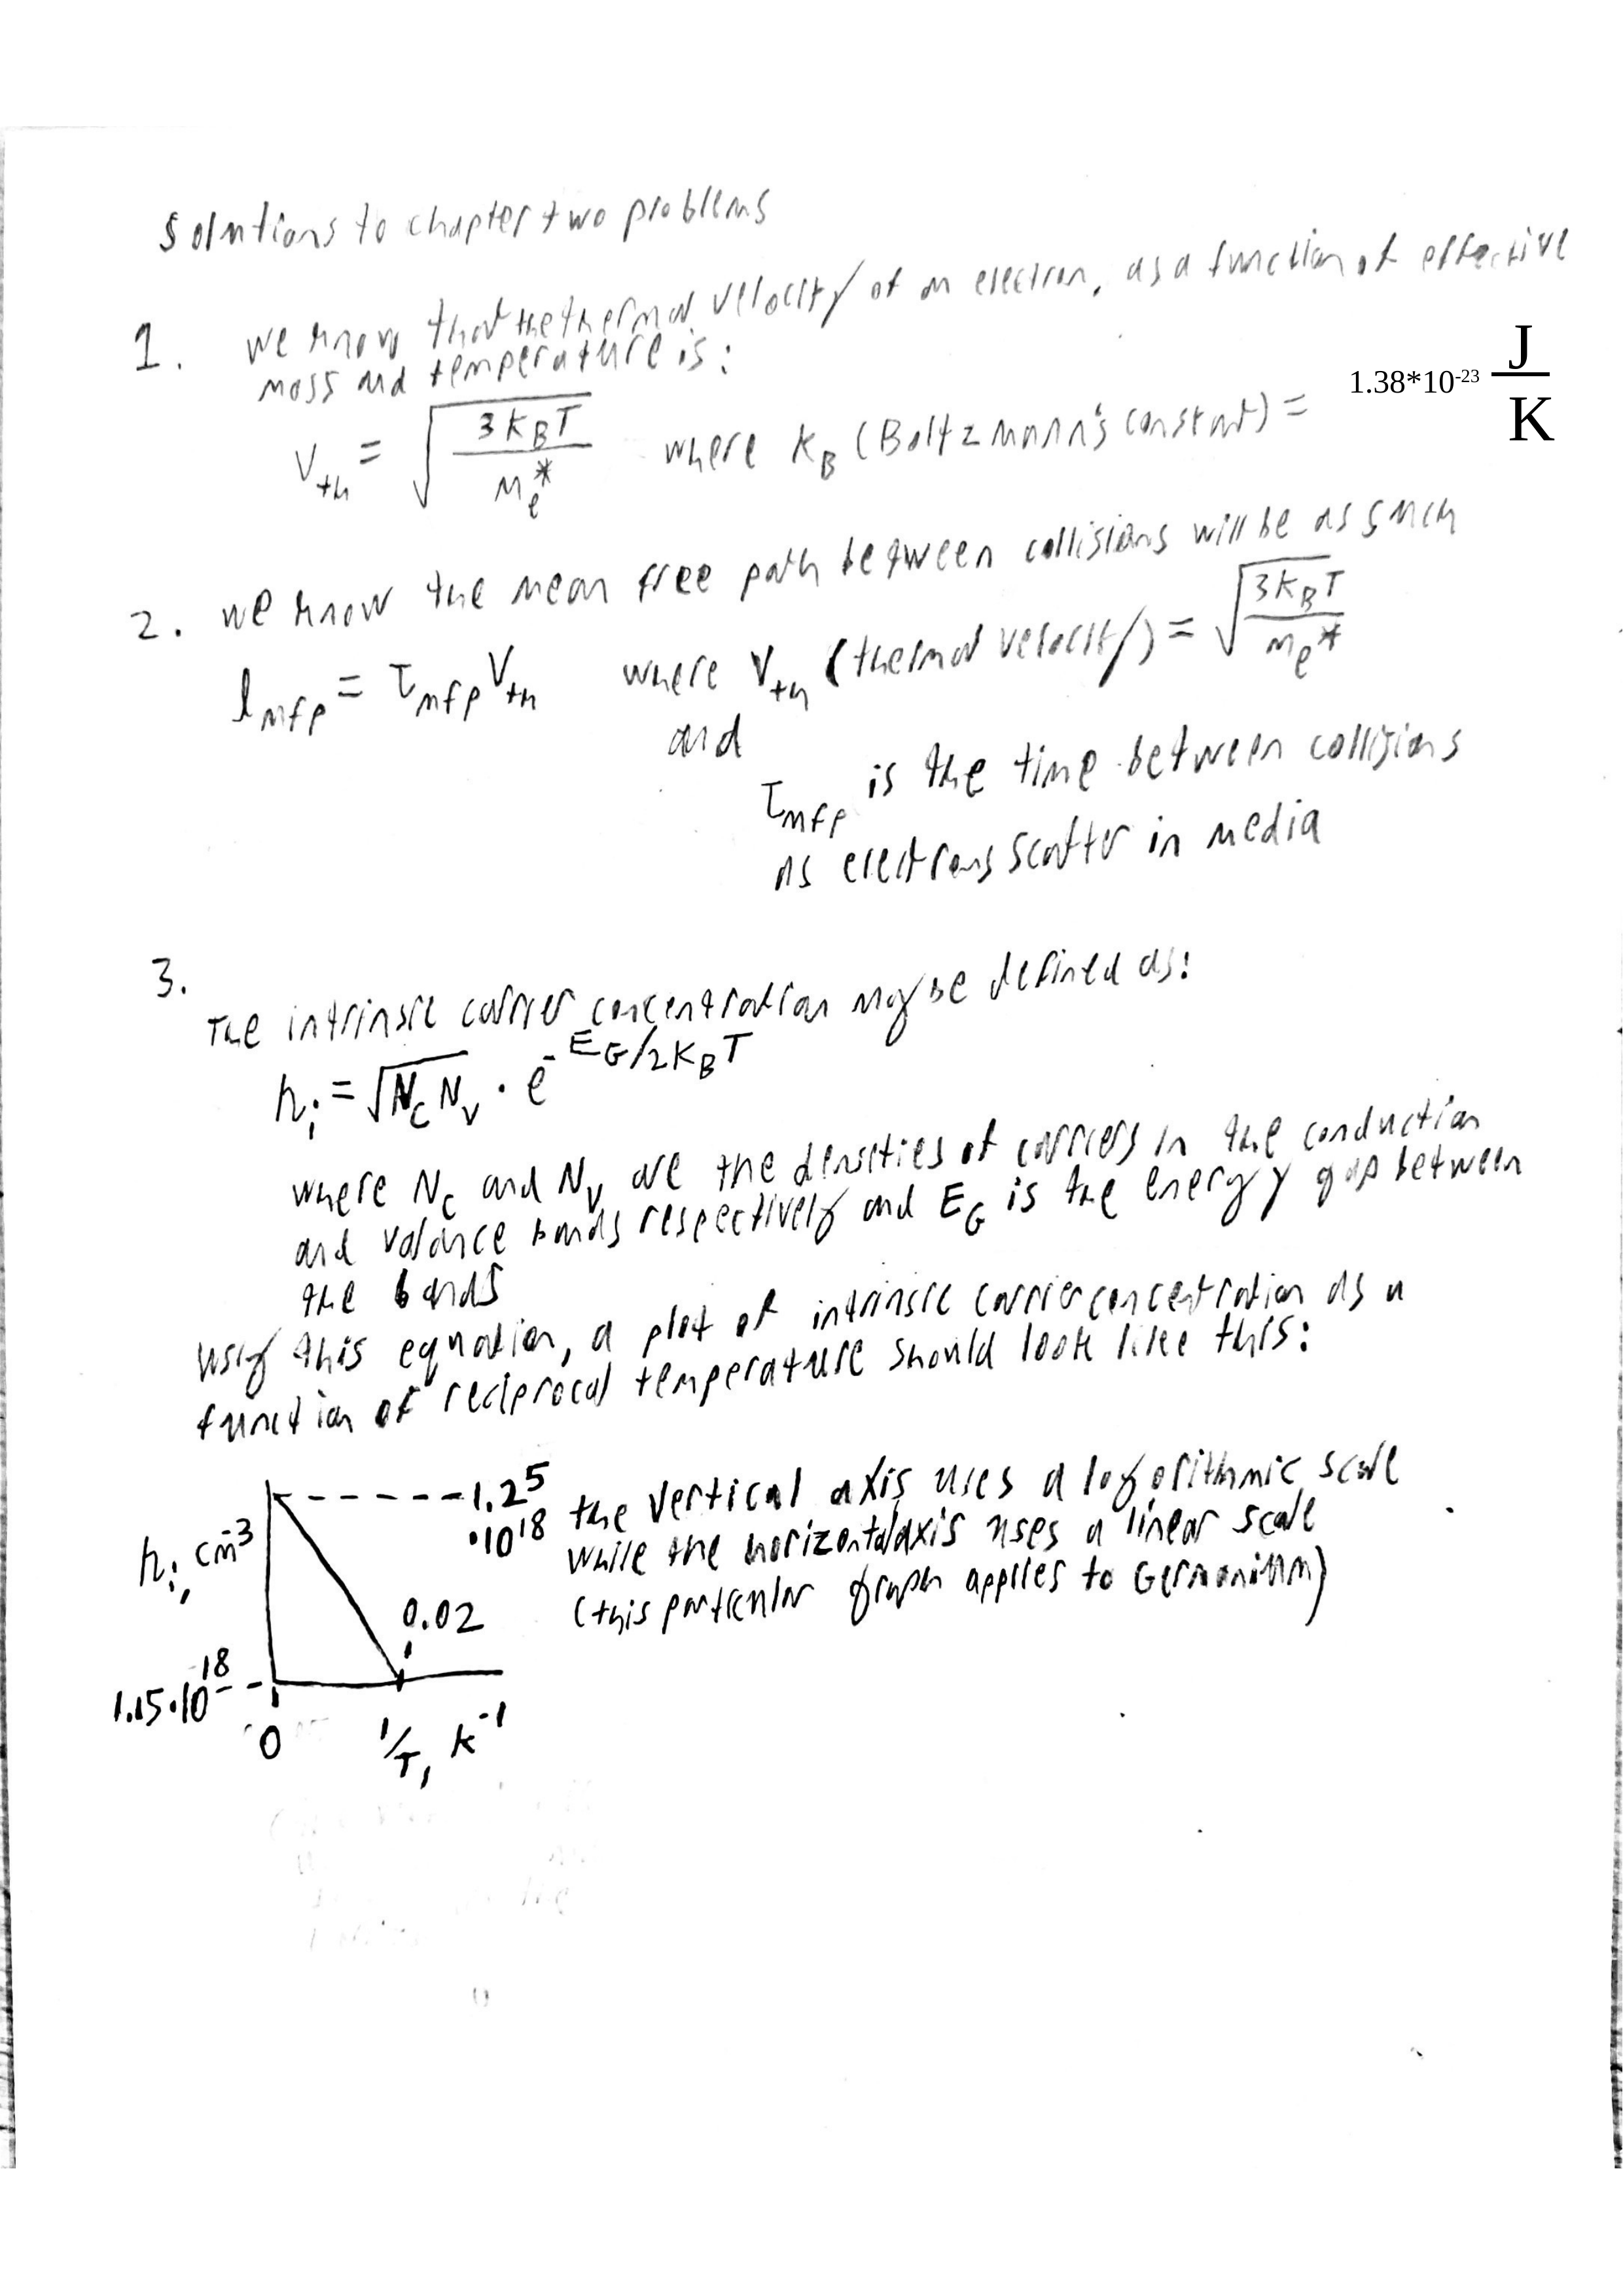 Solutions to chapter two problems
1. we know that the thermal velocity of an electron, as a function of effective
mass and temperature is:
V_th = √(3K_BT / m_e*) where K_B (Boltzmann's constant) = 1.38*10^-23 J/K
2. we know the mean free path between collisions will be as such
l_mfp = τ_mfp V_th where V_th (thermal velocity) = √(3K_BT / m_e*)
and
τ_mfp is the time between collisions
as electrons scatter in media
3.
The intrinsic carrier concentration may be defined as:
n_i = √(N_C N_V) · e^(-E_G/2K_BT)
where N_C and N_V are the densities of carriers in the conduction
and valance bands respectively and E_G is the energy gap between
the bands
using this equation, a plot of intrinsic carrier concentration as a
function of reciprocal temperature should look like this:
1.25
·10^18
n_i, cm^-3
the vertical axis uses a logorithmic scale
while the horizontal axis uses a linear scale
(this particular graph applies to Germanium)
0.02
1.15·10^18
0
1/T, K^-1